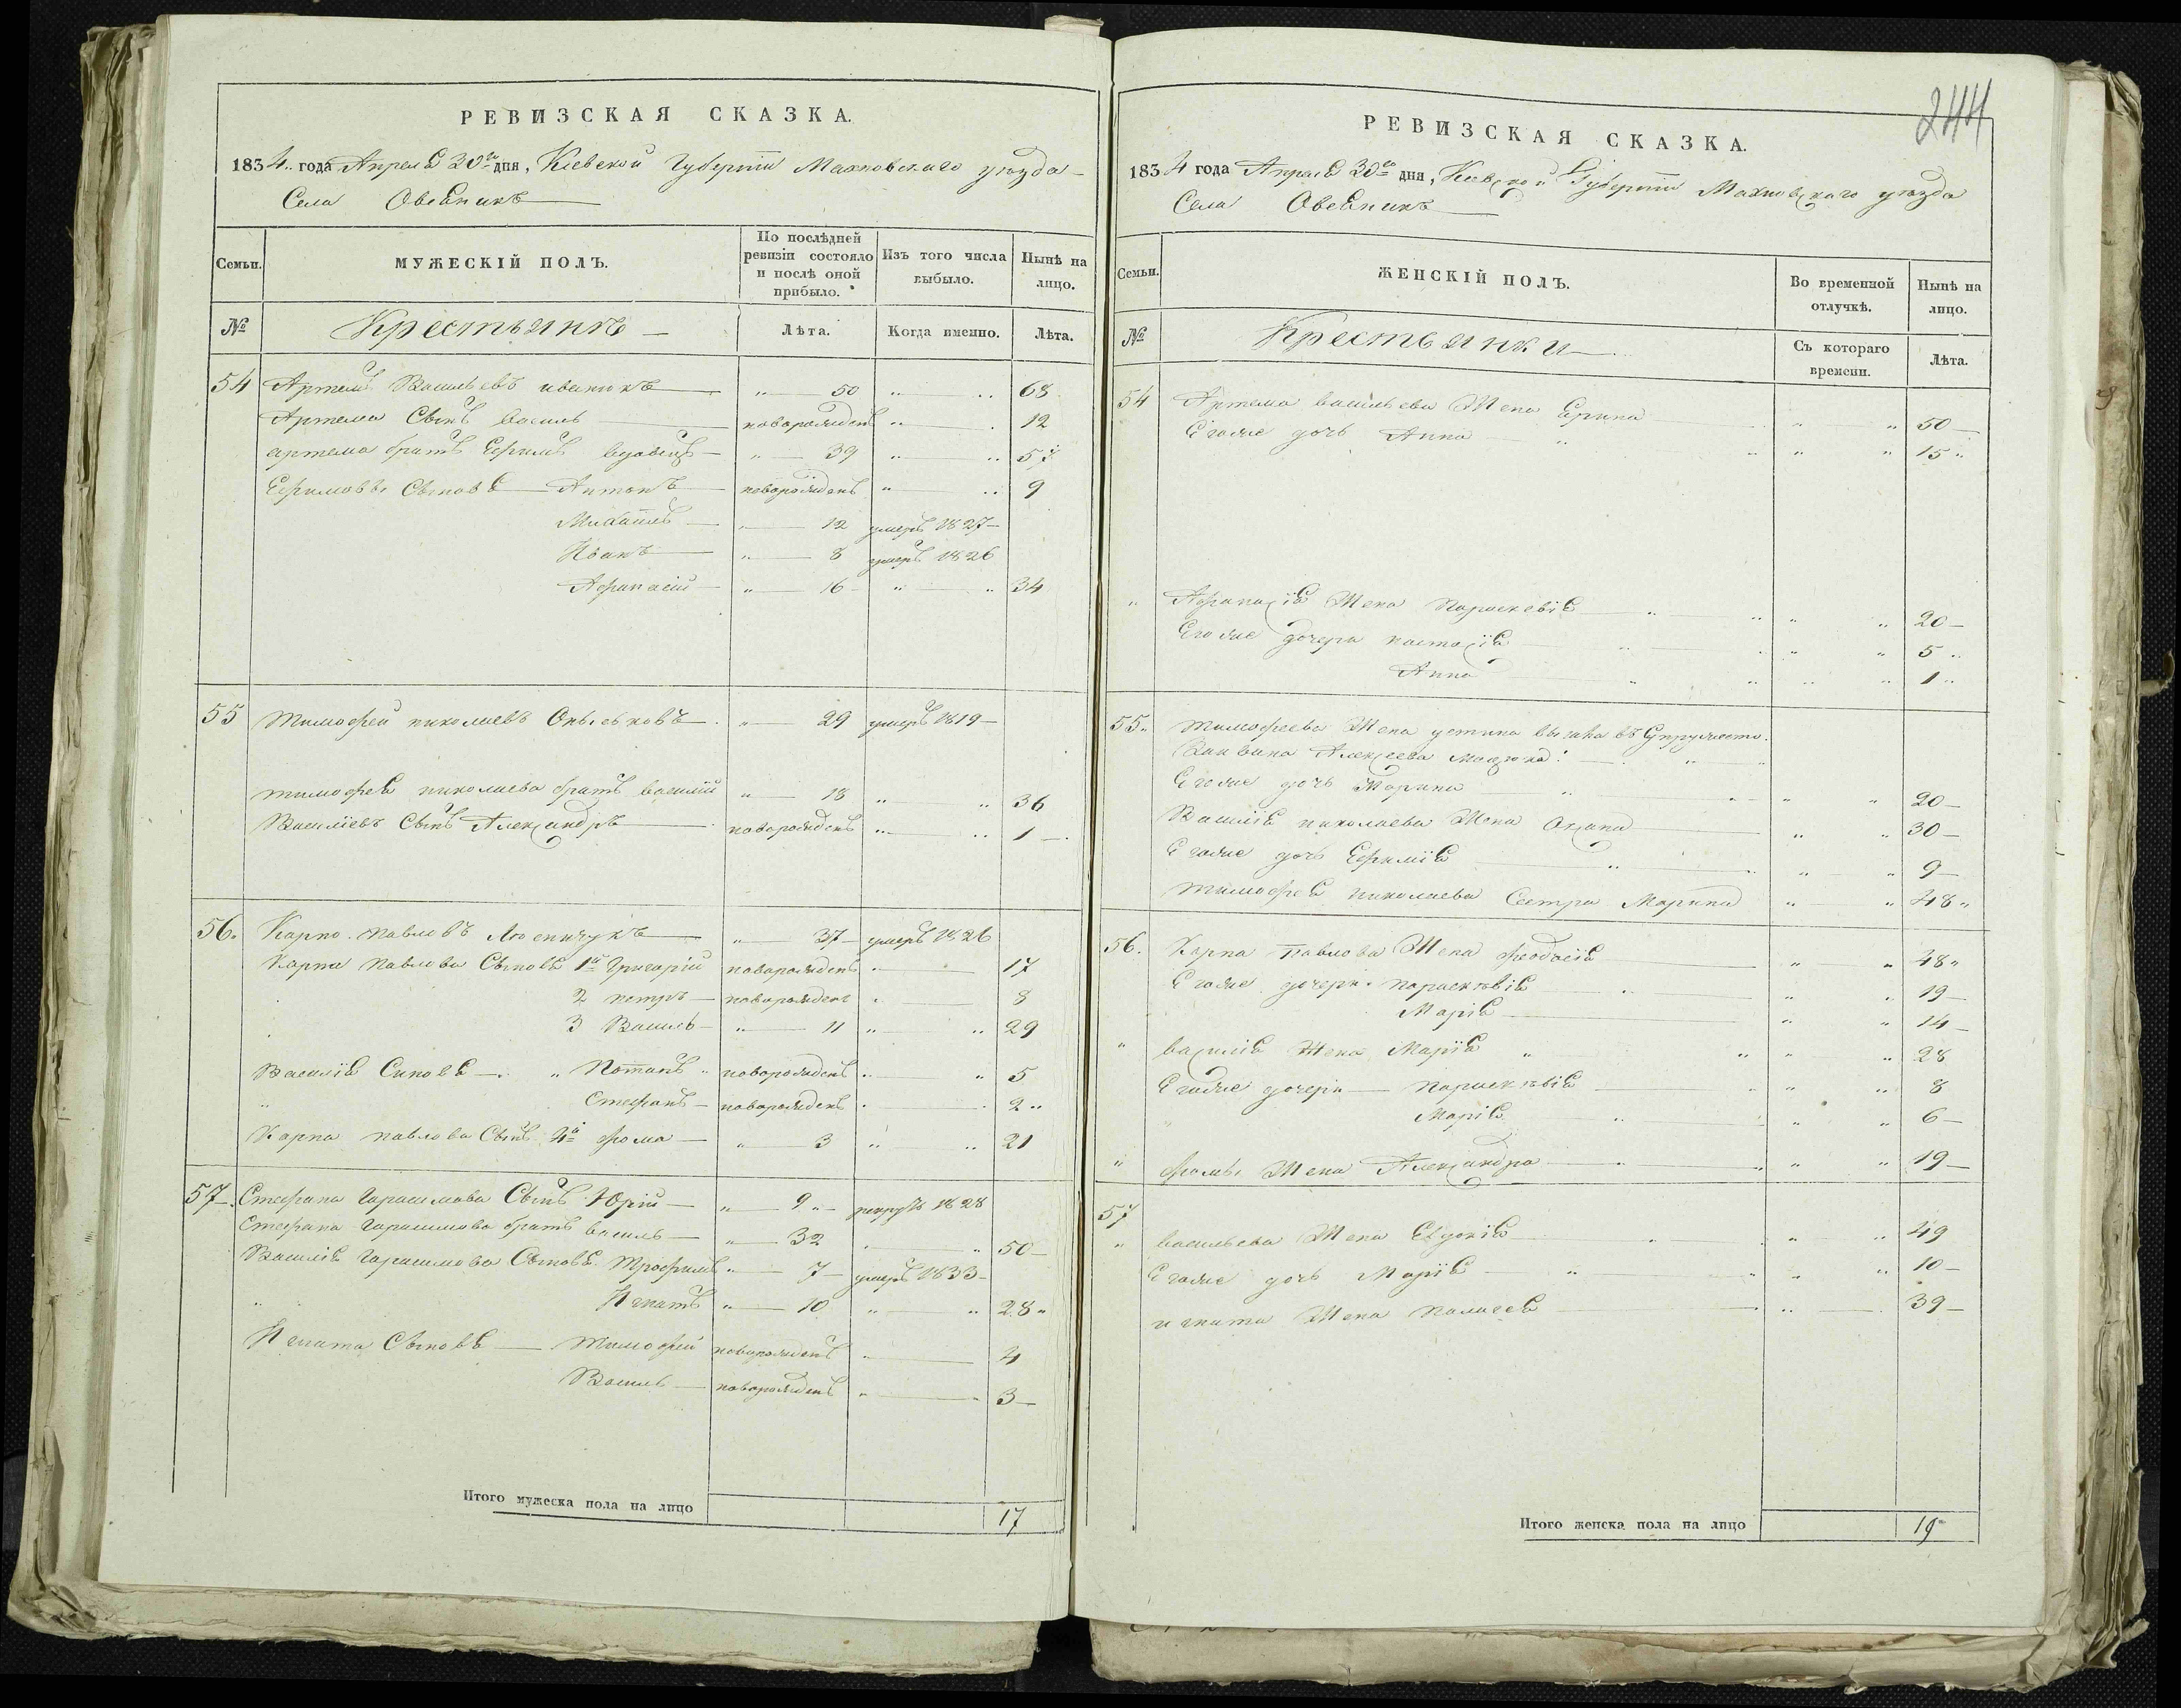 РЕВИЗСКАЯ СКАЗКА.
1834.. года Апреля 30го дня, Киевской Губернiи Махновскаго уѣзда
Села Овсяникъ
Семьи. МУЖЕСКIЙ ПОЛЪ. По послѣдней ревизiи состояло и послѣ оной прибыло. Изъ того числа выбыло. Нынѣ на лицо.
№ Крестьянѣ Лѣта. Когда именно. Лѣта.
54 Артемъ Васильевъ иванюкъ " 50 " .. 68
Артема Сынъ василь новорожденъ " . 12
артема братъ Ефимъ вдовецъ " 39 " .. 57
Ефимовы Сыновя Антонъ новорожденъ " .. 9
Михаилъ " 12 умеръ 1827
Иванъ " 8 умеръ 1826
Афанасiй " 16 " .. 34
55 тимофей николаевъ " 29 умеръ 1819
тимофея николаева братъ василiй " 18 " .. 36
Василiевъ Сынъ Александръ новорожденъ " .. 1
56. Карпо павловъ " 37 умеръ 1826
Карпа павлова Сыновя 1й Григорiй новорожденъ " 17
2 петръ новорожденъ " 8
3 Василь " 11 " .. 29
Василiя Синовя " Потапъ новорожденъ . " 5
" Стефанъ новорожденъ . . 2 ..
Карпа павлова Сынъ 4й фома " 3 " .. 21
57. Стефана гарасимова Сынъ Юрiй " 9 рекрутъ 1828
Стефана гарасимова братъ василь " 32 " " 50
Василiя гарасимова Сыновя трофимъ " 7 умеръ 1833
" Игнатъ " 10 " " 28
Игната Сыновя тимофей новорожденъ " 4
Василь новорожденъ " 3
Итого мужеска пола на лицо 17
244
РЕВИЗСКАЯ СКАЗКА.
1834 года Апреля 30го дня, Киевской Губернiи Махновскаго уѣзда
Села Овсяникъ
Семьи. ЖЕНСКIЙ ПОЛЪ. Во временной отлучкѣ. Нынѣ на лицо.
№ Крестьянки Съ котораго времени. Лѣта.
54 Артема васильева Жена Ирина " " 50
Егоже дочь Анна " " 15
" Афанасiя Жена Параскевiя " " 20
Егоже дочери настасiя " " 5
Анна " 1
55. тимофеева Жена устина въ Супружество
Алексеева
Егоже дочь Марина " " 20
Василiя николаева Жена Оксана " " 30
Егоже дочь Ефимiя " " 9
тимофея николаева Сестра Марина " " 48
56. Карпа павлова Жена феодосiя " " 48
Егоже дочери параскевiя " " 19
Марiя " " 14
" василiя Жена Марiя " " 28
Егоже дочери параскевiя " " 8
Марiя " " 6
" фомы Жена Александра " " 19
57
" васильева Жена Евдокiя " " 49
Егоже дочь Марiя " " 10
игната Жена палагея " . 39
Итого женска пола на лицо 19